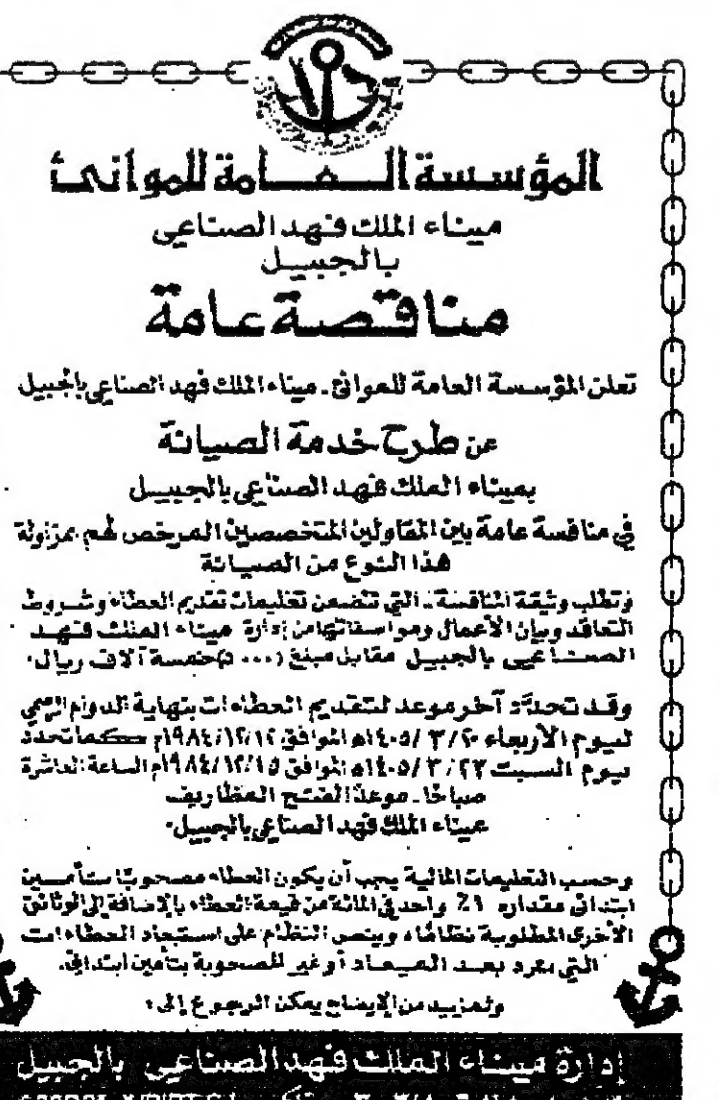 المؤسسة العامة للموانئ
ميناء الملك فهد الصناعي
بالجبيل
مناقصة عامة
تعلن المؤسسة العامة للموانئ - ميناء الملك فهد الصناعي بالجبيل
عن طرح خدمة الصيانة
بميناء الملك فهد الصناعي بالجبيل
في منافسة عامة بين المقاولين المتخصصين المرخص لهم بمزاولة
هذا النوع من الصيانة
وتطلب وثيقة المنافسة - التي تتضمن تعليمات تقديم العطاء وشروط
التعاقد وبيان الأعمال ومواصفاتها من إدارة ميناء الملك فهد
الصناعي بالجبيل مقابل مبلغ (٥٠٠٠) خمسة آلاف ريال.
وقد تحدد آخر موعد لتقديم العطاءات بنهاية الدوام الرسمي
ليوم الأربعاء ٢٠ / ٣ / ١٤٠٥هـ الموافق ١٢ / ١٢ / ١٩٨٤م كما تحدد
يوم السبت ٢٣ / ٣ / ١٤٠٥هـ الموافق ١٥ / ١٢ / ١٩٨٤م الساعة العاشرة
صباحًا - موعدًا لفتح المظاريف
بميناء الملك فهد الصناعي بالجبيل.
وحسب التعليمات المالية يجب أن يكون العطاء مصحوبًا بتأمين
ابتدائي مقداره ١٪ واحد في المائة من قيمة العطاء بالإضافة إلى الوثائق
الأخرى المطلوبة نظامًا، وينص النظام على استبعاد العطاءات
التي ترد بعد الميعاد أو غير المصحوبة بتأمين ابتدائي.
ولمزيد من الإيضاح يمكن الرجوع إلى:
إدارة ميناء الملك فهد الصناعي بالجبيل